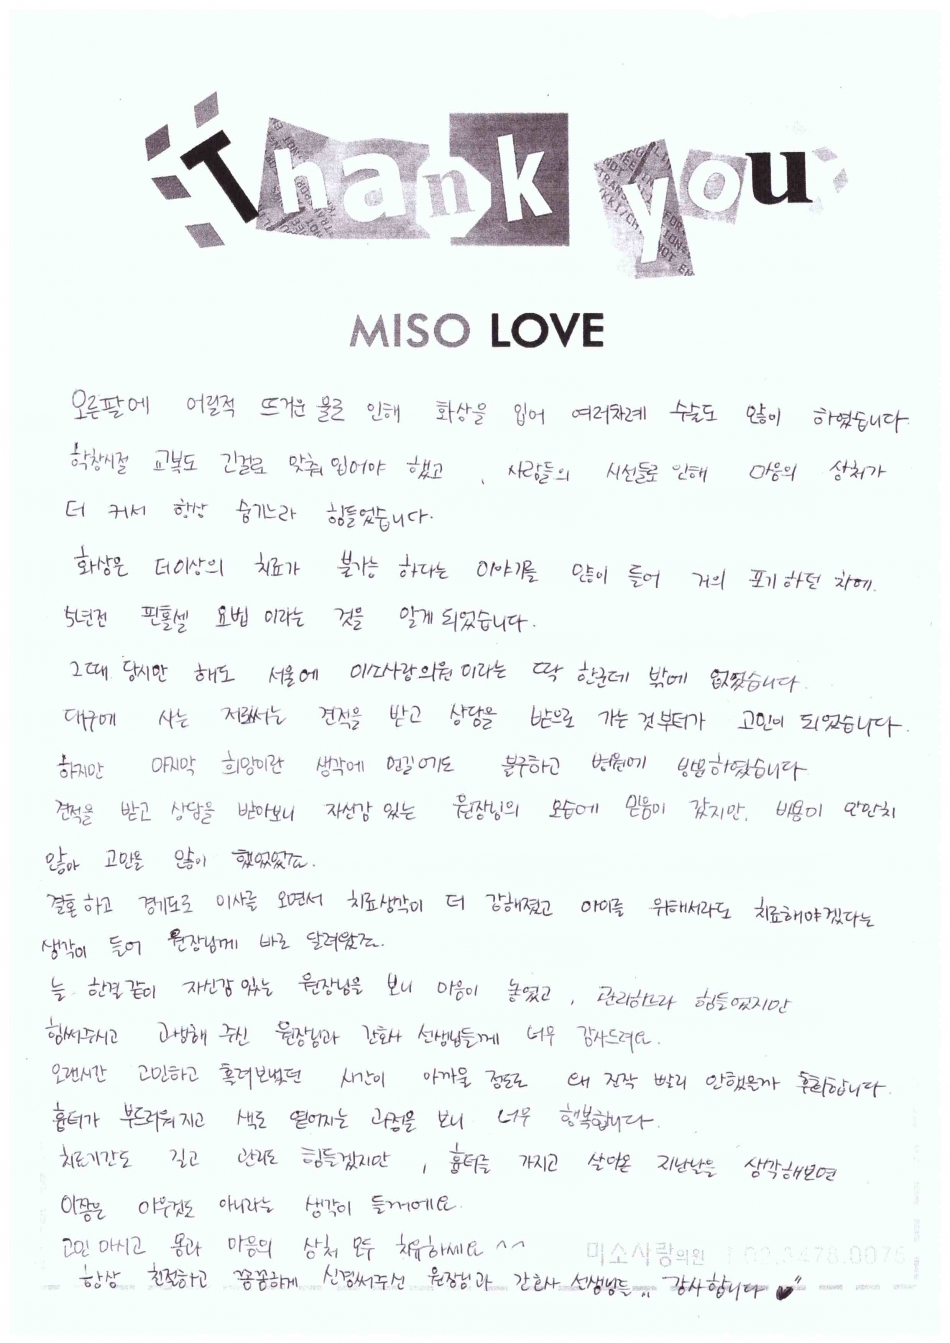 Thank you
MISO LOVE
오른팔에 어릴적 뜨거운 물로 인해 화상을 입어 여러차례 수술도 많이 하였습니다.
학창시절 교복도 긴걸로 맞춰 입어야 했고, 사람들의 시선들로 인해 마음의 상처가
더 커서 항상 숨기느라 힘들었습니다.
화상은 더이상의 치료가 불가능 하다는 이야기를 많이 들어 거의 포기하던 차에.
5년전 핀홀셀 요법 이라는 것을 알게 되었습니다.
그때 당시만 해도 서울에 미소사랑의원 이라는 딱 한군데 밖에 없었습니다.
대구에 사는 저로서는 견적을 받고 상담을 받으로 가는 것부터가 고민이 되었습니다.
하지만 마지막 희망이란 생각에 먼길에도 불구하고 병원에 방문하였습니다
견적을 받고 상담을 받아보니 자신감 있는 원장님의 모습에 믿음이 갔지만, 비용이 만만치
않아 고민을 많이 했었었죠.
결혼하고 경기도로 이사를 오면서 치료생각이 더 강해졌고 아이를 위해서라도 치료해야겠다는
생각이 들어 원장님께 바로 달려왔죠.
늘 한결같이 자신감있는 원장님을 보니 마음이 놓였고, 관리하느라 힘들었지만
힘써주시고 고생해 주신 원장님과 간호사 선생님들께 너무 감사드려요.
오랜시간 고민하고 흘려보냈던 시간이 아까울 정도로 왜 진작 빨리 안했을까 후회합니다.
흉터가 부드러워지고 색도 옅어지는 과정을 보니 너무 행복합니다.
치료기간도 길고 관리도 힘들겠지만, 흉터를 가지고 살아온 지난날을 생각해보면
이쯤은 아무것도 아니라는 생각이 들거에요.
고민 마시고 몸과 마음의 상처 모두 치유하세요 ^^
미소사랑의원 02.3478.0075
항상 친절하고 꼼꼼하게 신경써주신 원장님과 간호사 선생님들.. 감사합니다 ♥